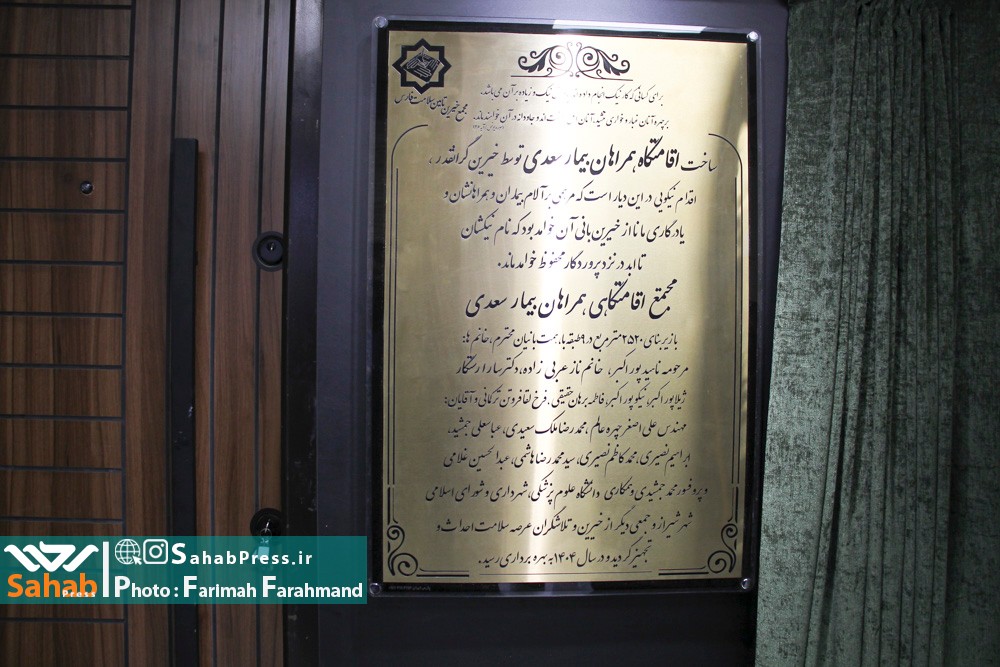 مجمع خیرین تامین سلامت فارس
برای کسانی که کار نیک انجام داده‌اند نیک و زیاده بر آن می‌باشد.
بر چهره آنان غبار و خواری ننشیند، آنان اهل اند و جاودانه در آن خواهند ماند.
ساخت اقامتگاه همراهان بیمار سعدی توسط خیرین گرانقدر،
اقدام نیکویی در این دیار است که مرهمی بر آلام بیماران و همراهانشان و
یادگاری مانا از خیرین بانی آن خواهد بود که نام نیکشان
تا ابد در نزد پروردگار محفوظ خواهد ماند.
مجتمع اقامتگاهی همراهان بیمار سعدی
با زیربنای ۲۵۲۰ مترمربع در ۹ طبقه با همت بانیان محترم، خانم ها:
مرحومه ناهید پور اکبر، خانم ناز عربی زاده، دکتر سارا رستگار
ژیلا پور اکبر، نیکو پور اکبر، فاطمه برهان حقیقی، فرخ لقا فروتن ترکانی و آقایان:
مهندس علی اصغر چهره عالم، محمدرضا ملک سعیدی، عباسعلی جمشید،
ابراهیم نصیری، محمد کاظم نصیری، سید محمد رضا هاشمی، عبدالحسین غلامی
و پروفسور محمد جمشیدی و همکاری دانشگاه علوم پزشکی، شهرداری و شورای اسلامی
شهر شیراز و جمعی دیگر از خیرین و تلاشگران عرصه سلامت احداث و
تجهیز گردید و در سال ۱۴۰۴ به بهره برداری رسید.
SahabPress.ir
Sahab Press
Photo : Farimah Farahmand